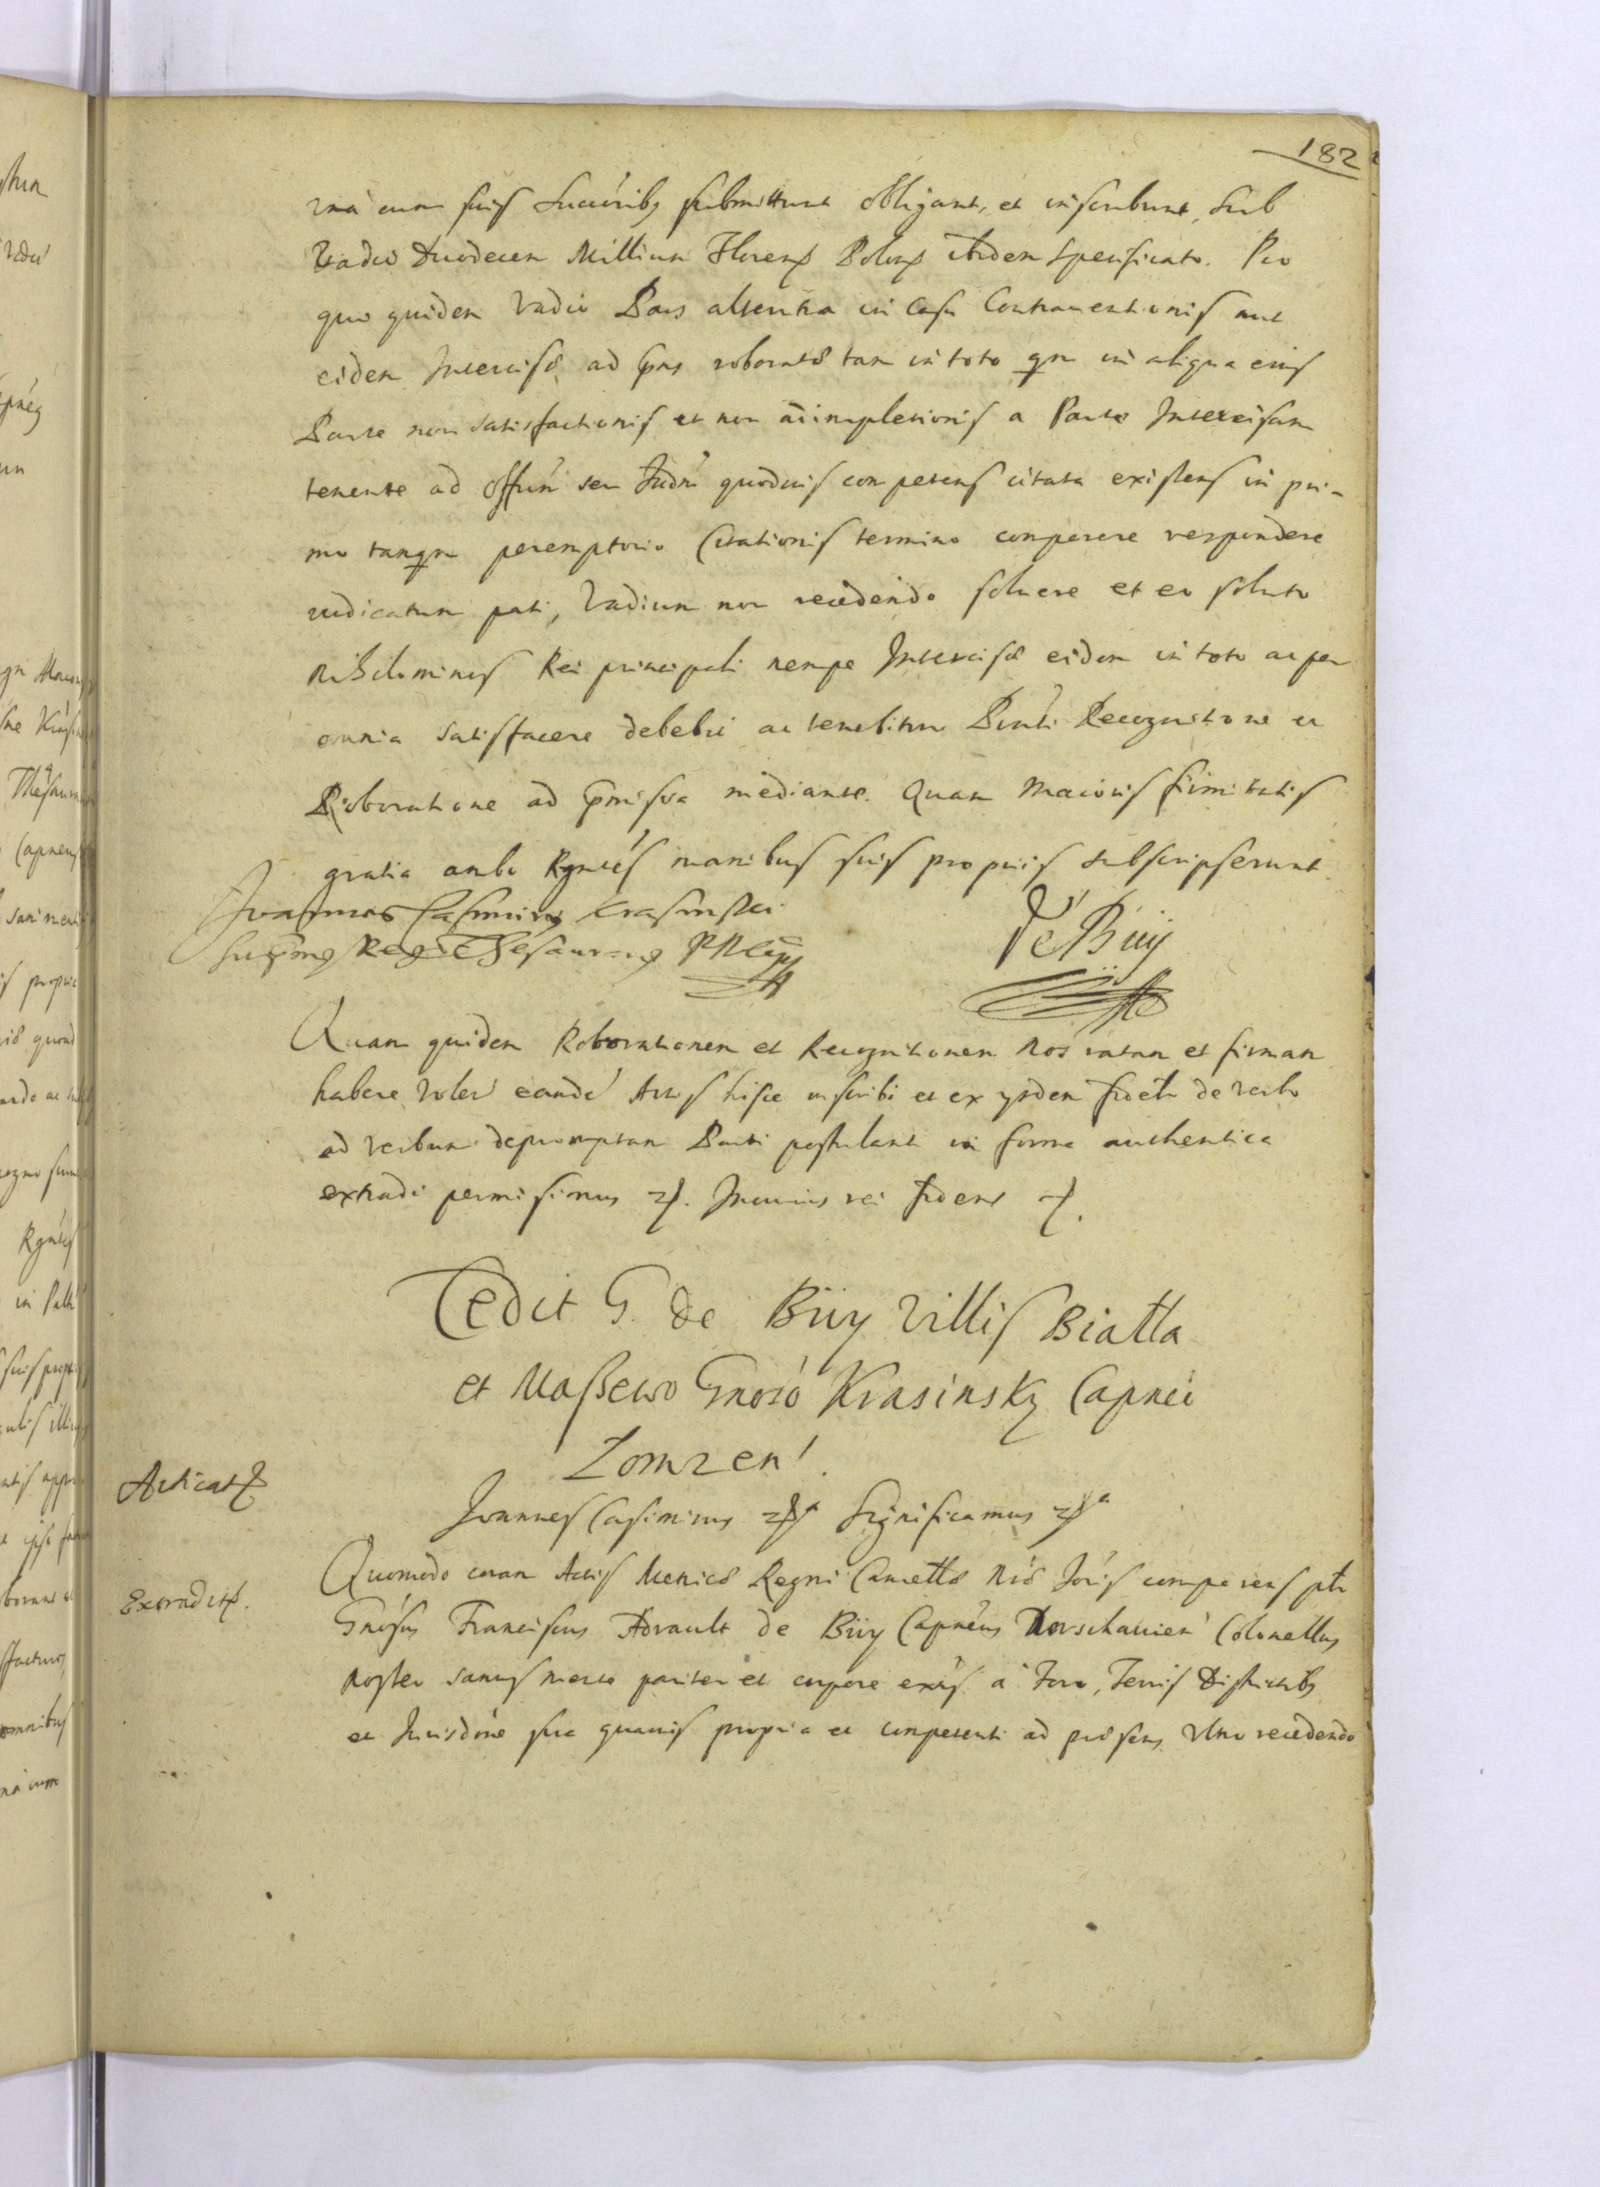 182
una cum suis Succrib9 submittunt obligant, et inscribunt, sub
Vadio Duodecem Millium Floren Polon ibidem specificato. Pro
quo quidem Vadio Pars alterutra in Casu Contraventionis aut
eidem Intercisae ad pns roboratae tam in toto qm in aliqua eius
Parte non satisfactionis et non adimpletionis a Parte Intercisam
tenente ad Offm seu Judm quoduis competens citata existens in pri-
mo tanqm peremptorio Citationis termino comparere respondere
iudicatum pati, Vadium non recedendo soluere et eo soluto
nihilominus Rei principali nempe Intercisae eidem in toto ac per
omnia satisfacere debebit ac tenebitur Pnti Recognitione et
Roboratione ad pmissa mediante. Quam maioris firmitatis
gratia ambo Rgntes manibus suis proprijs subscripserunt.
Joannes Casimirus Krasinski
Supmus Regni Thesaurarius
De Büy
Quam quidem Roborationem et Recognitionem Nos ratam et firmam
habere voles eande Actis hisce inscribi et ex ysdem fidelr de verbo
ad verbum depromptam Parti postulanti in forma authentica
extradi permisimus. In cuius rei fidem
Cedit G. de Büy Villis Biatta
et Maßewo Gnoso Krasinsky Capneo
Lomzen.
Acticat
Joannes Casimirus Significamus
Quomodo coram Actis Metricae Regni Cancellae nrae Joris comparens pter
Extradit.
Gnosus Franciscus Adrault de Büy Capneus Dorschavien Colonellus
noster sanus mente pariter et corpore exns a Foro, Terris Districtib9
et Jurisdone sua quauis propria et competenti ad praesens Vtro recedendo